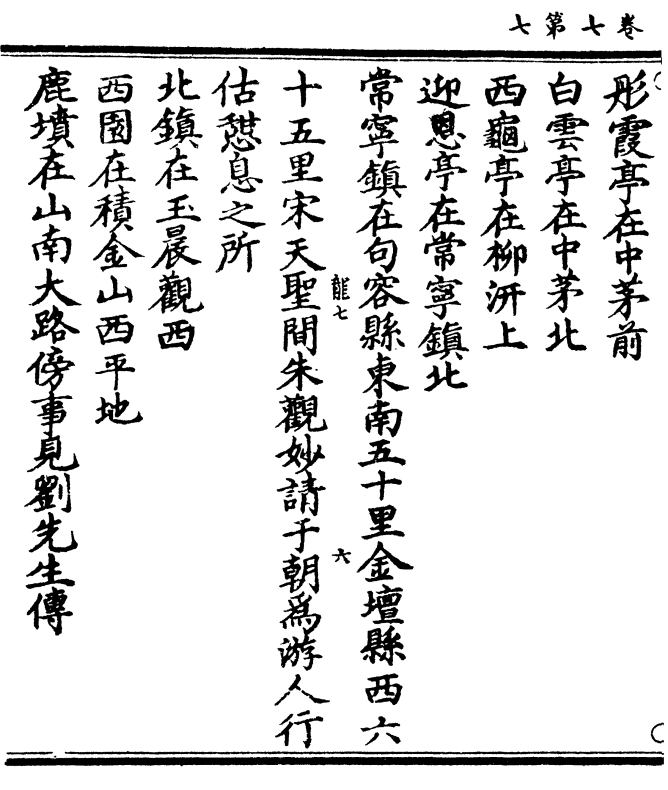 卷七第七
彤霞亭在中茅前
白雲亭在中茅北
西龜亭在柳汧上
迎恩亭在常寧鎮北
常寧鎮在句容縣東南五十里金壇縣西六
龍七 六
十五里宋天聖間朱觀妙請于朝爲游人行
估憇息之所
北鎮在玉晨觀西
西園在積金山西平地
鹿墳在山南大路傍事見劉先生傳